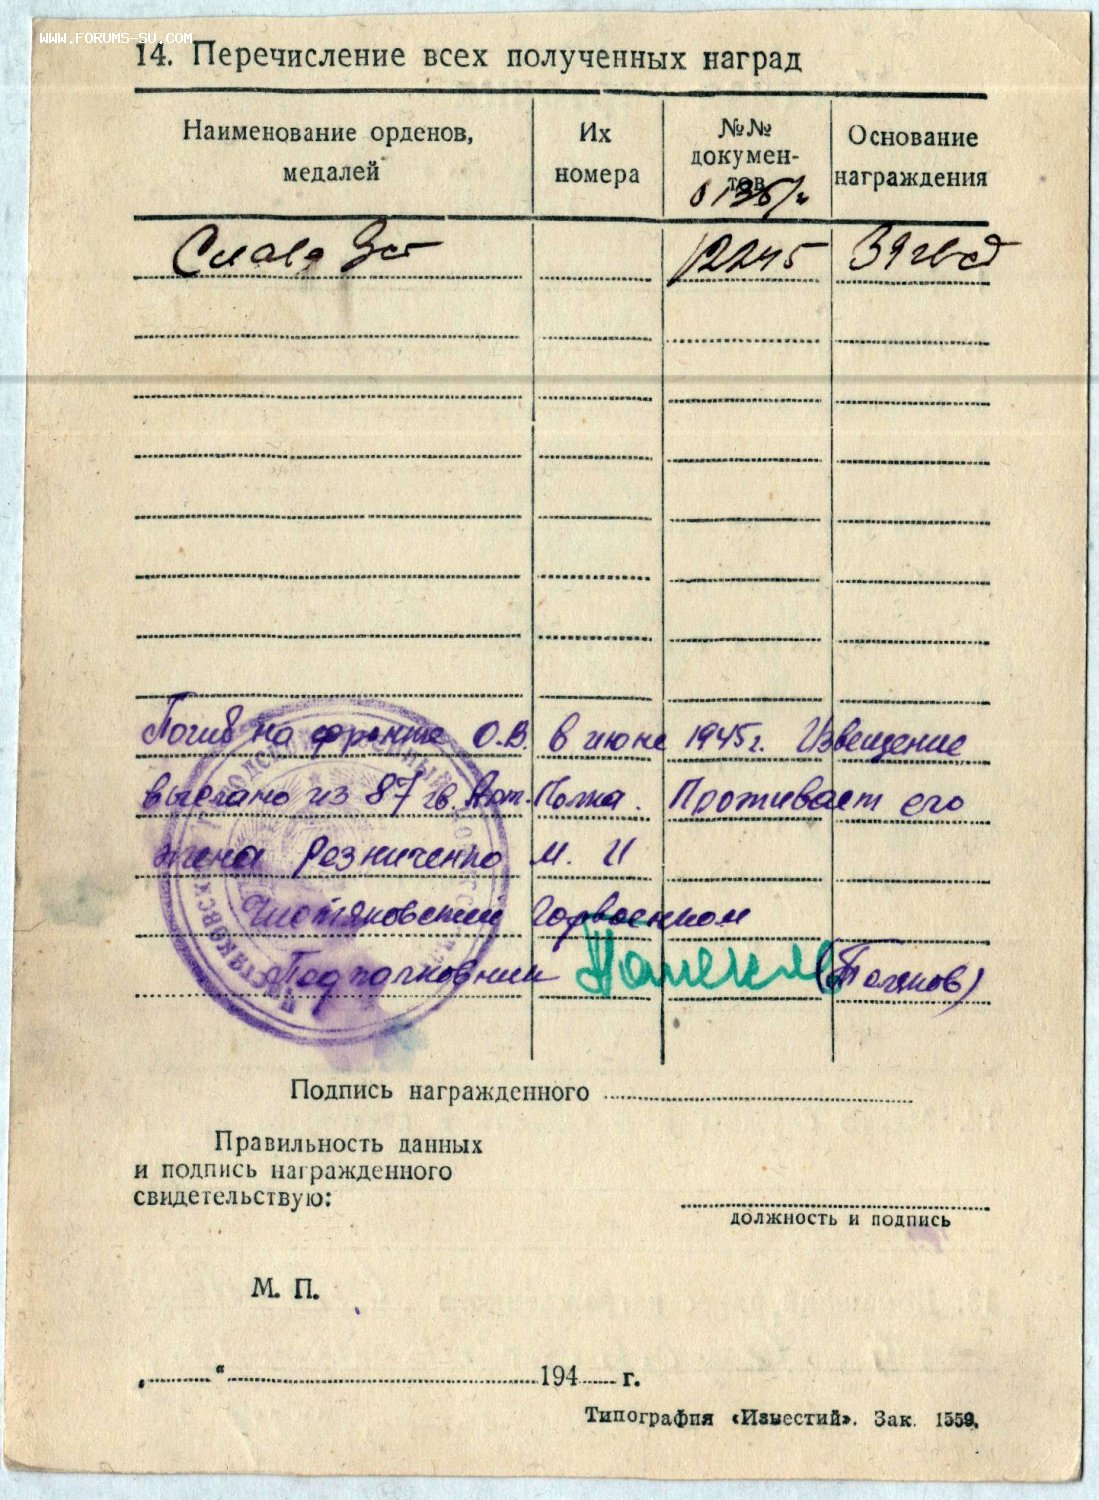 WWW.FORUMS-SU.COM
14. Перечисление всех полученных наград
Наименование орденов, медалей
Их номера
№№ документов
Основание награждения
Слава 3 ст
12245
39 гв сд
Погиб на фронте О.В. в июне 1945 г. Извещение
выслано из 87 гв. Арт. Полка. Проживает его
жена Резниченко М. И
Чистяковский Горвоенком
Подполковник
Подпись награжденного
Правильность данных
и подпись награжденного
свидетельствую:
должность и подпись
М. П.
„ “ 194 г.
Типография «Известий». Зак. 1559.